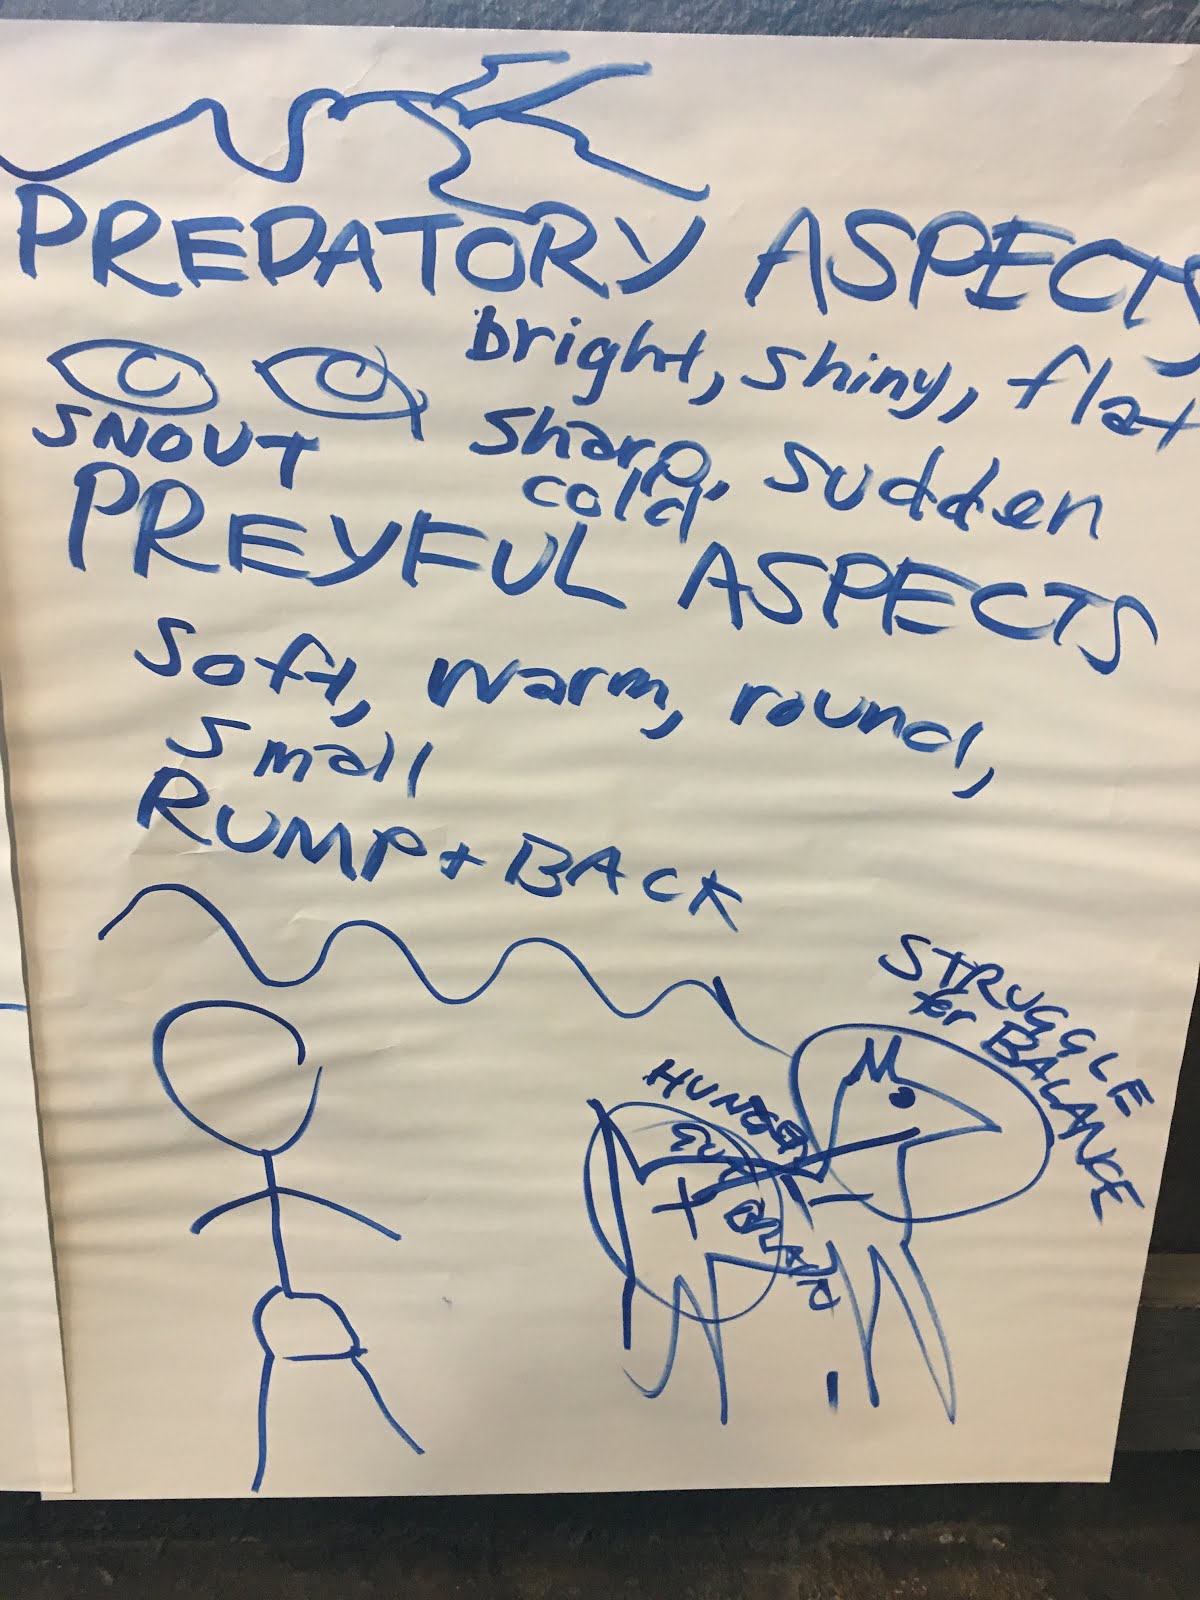 PREDATORY ASPECTS
bright, shiny, flat
SNOUT
sharp, sudden
cold
PREYFUL ASPECTS
soft, warm, round,
small
RUMP + BACK
STRUGGLE
for BALANCE
HUNGER
+